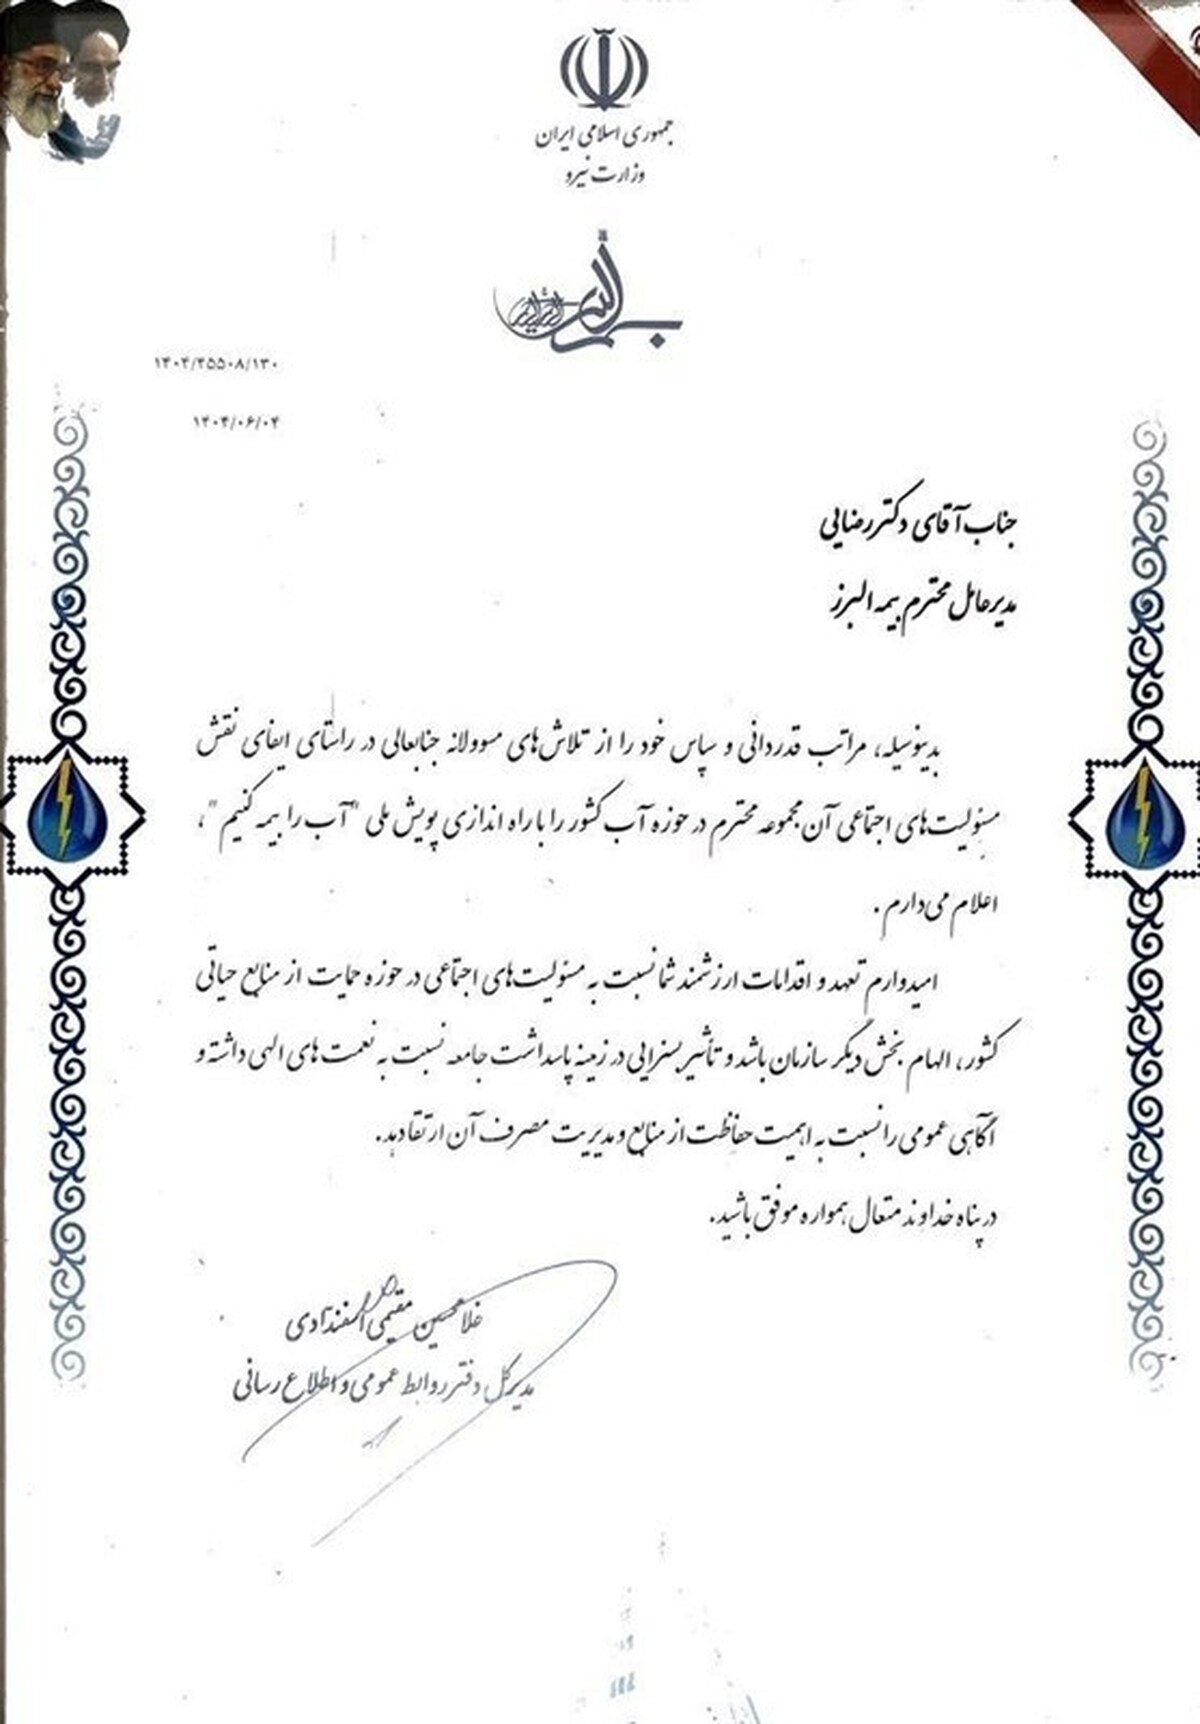 جمهوری اسلامی ایران
وزارت نیرو
بسم الله الرحمن الرحیم
۱۴۰۴/۲۵۵۰۸/۱۳۰
۱۴۰۴/۰۶/۰۴
جناب آقای دکتر رضایی
مدیرعامل محترم بیمه البرز
بدینوسیله، مراتب قدردانی و سپاس خود را از تلاش‌های مسوولانه جنابعالی در راستای ایفای نقش
مسئولیت‌های اجتماعی آن مجموعه محترم در حوزه آب کشور را با راه اندازی پویش ملی "آب را بیمه کنیم"،
اعلام می‌دارم.
امیدوارم تعهد و اقدامات ارزشمند شما نسبت به مسئولیت‌های اجتماعی در حوزه حمایت از منابع حیاتی
کشور، الهام بخش دیگر سازمان باشد و تأثیر بسزایی در زمینه پاسداشت جامعه نسبت به نعمت های الهی داشته و
آگاهی عمومی را نسبت به اهمیت حفاظت از منابع و مدیریت مصرف آن ارتقا دهد.
در پناه خداوند متعال همواره موفق باشید.
غلامحسین مقیمی اسفندآبادی
مدیرکل دفتر روابط عمومی و اطلاع رسانی